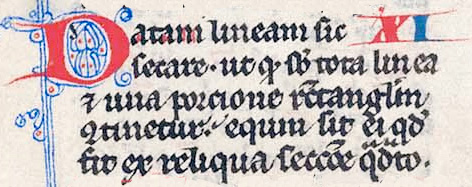 Datam lineam sic XI
secare · ut qᷓ sb̄ tota linea
⁊ una porcione rc̄tangl̄m
ꝯtinetur · equm sit ei qd̄
fit ex reliqua secc̄oe qd̄to .